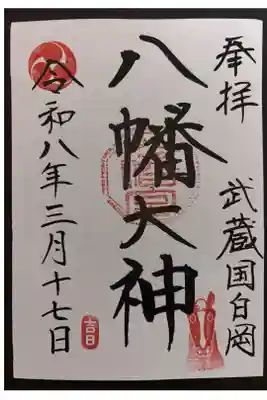 奉拝
武蔵国白岡
八幡大神
令和八年三月十七日
吉日